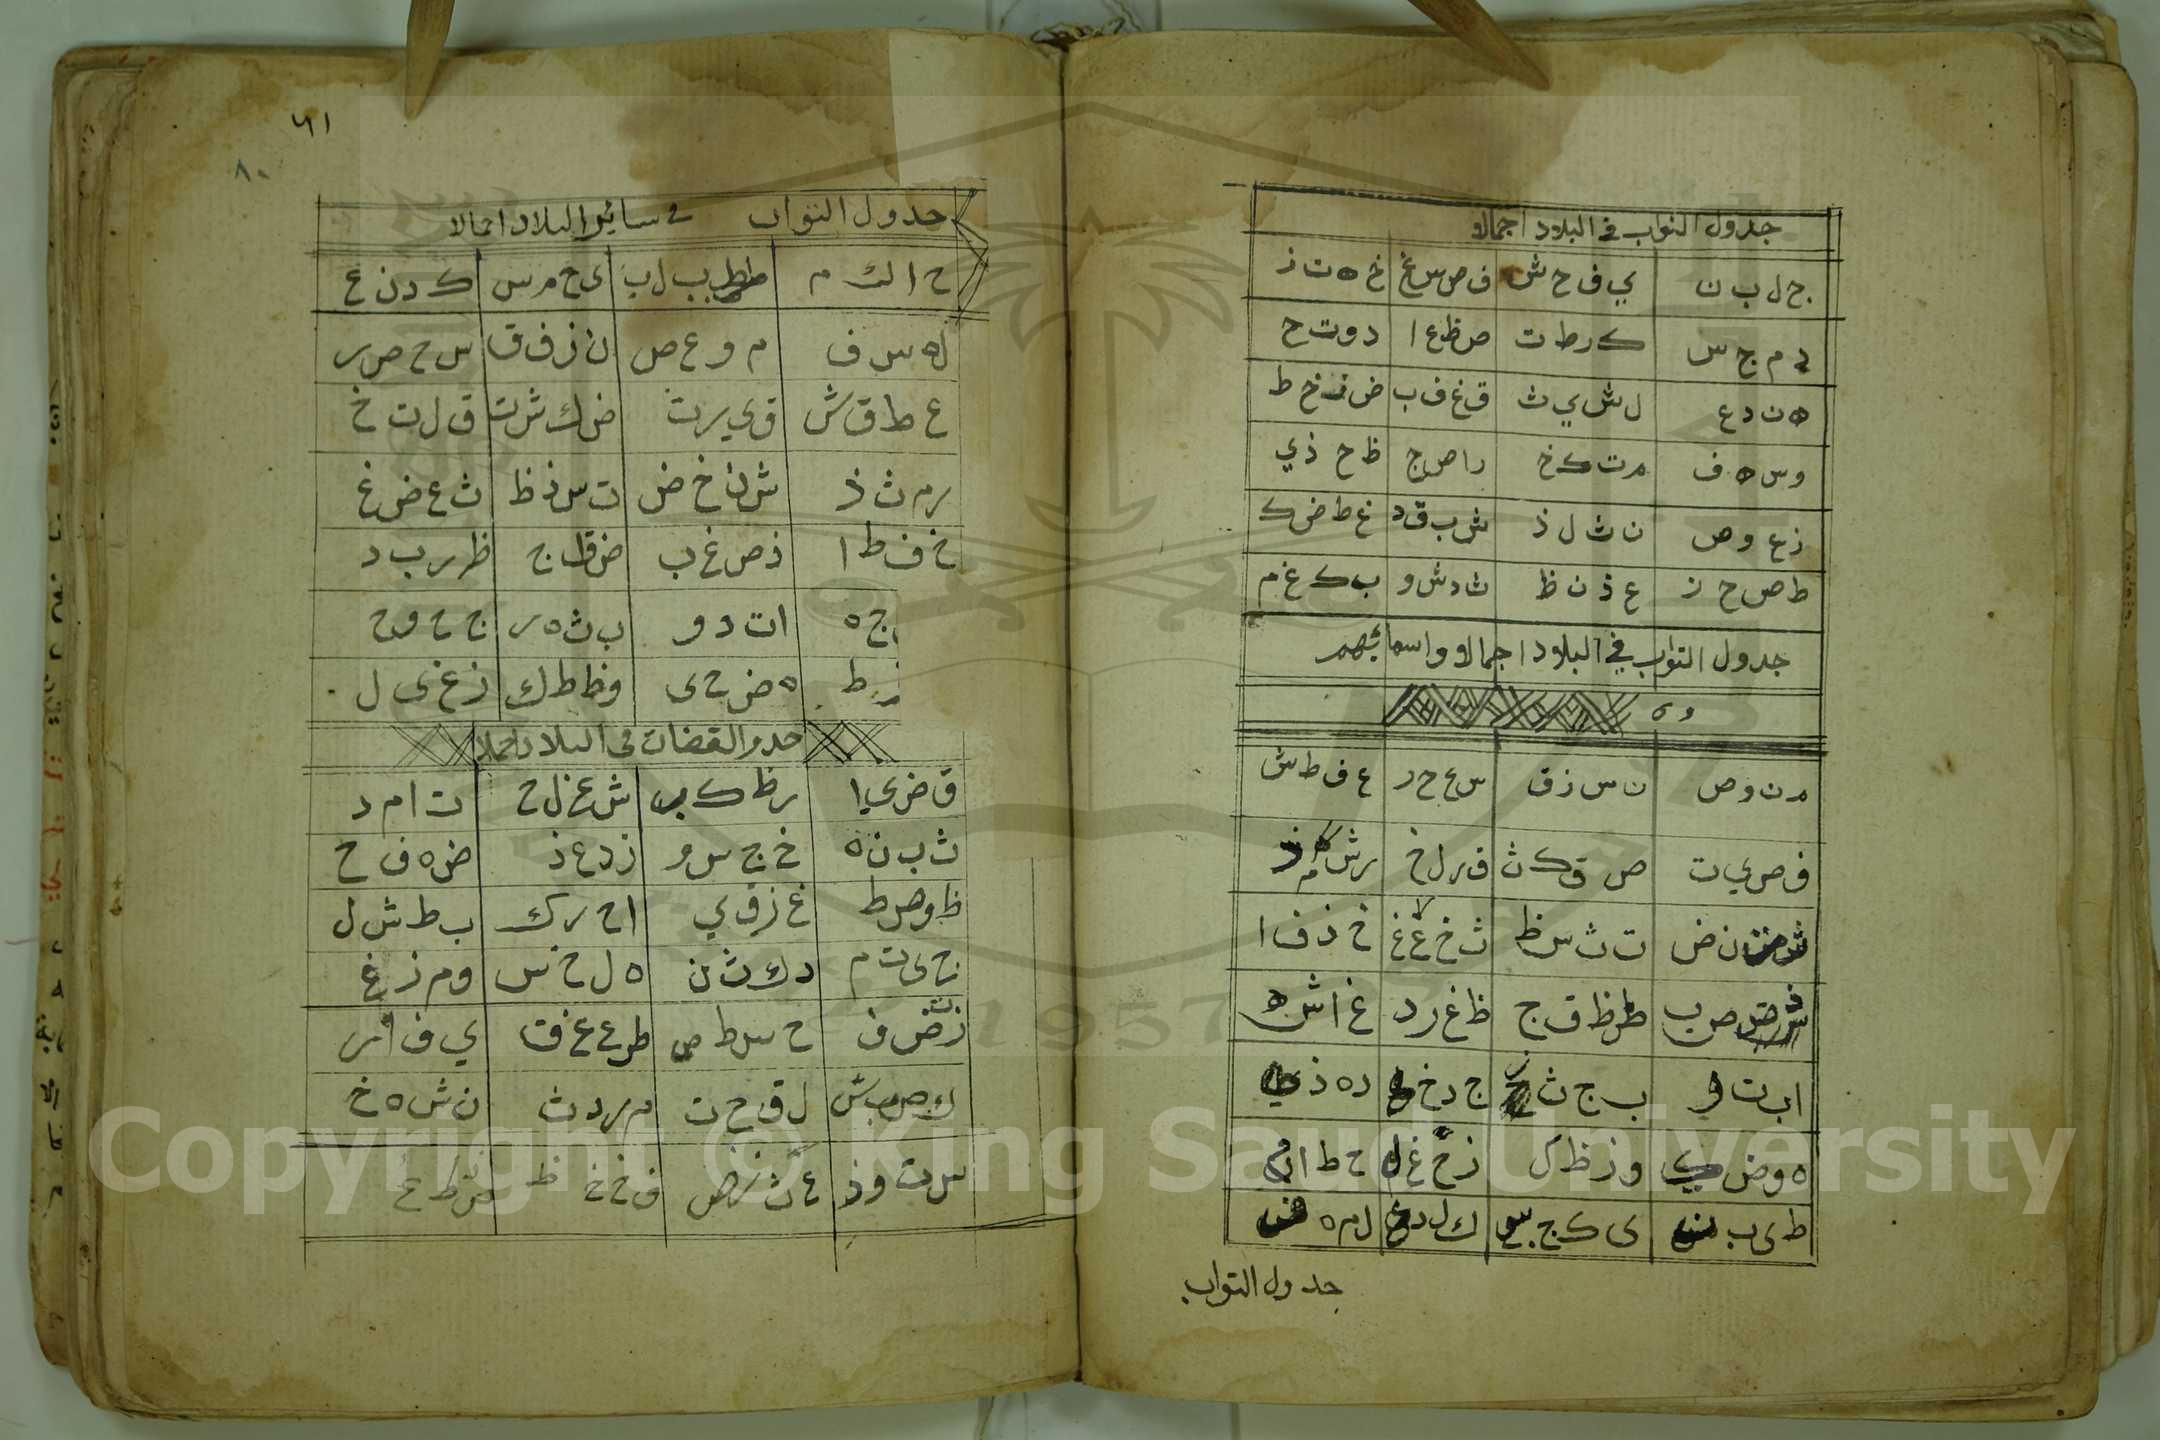 جدول النواب في البلاد اجمالا
ج ل ب ن ي ف ح ش ف ص س غ خ ه ت ز
د م ج س ك ر ط ت ص ظ ع ا د و ت ح
ه ن د ع ل ش ي ث ق غ ف ب ض خ ط
و س ه ف م ت ك خ ر ا ص ج ظ ح ذ ي
ز ع و ص ن ث ل ذ ش ب ق د غ ط ض ك
ط ص ح ز ع ذ ن ظ ث د ش و ب ك غ م
جدول النواب في البلاد اجمالا واسمائهم
م ن و ص ن س ز ق س ع ح ر ع ف ط ش
ف ص ي ت ص ق ك ث ق ر ل خ ر ش ذ
ن ض ت ث س ظ ث خ ع غ خ ذ ف ا
ص ب ط ظ ق ج ظ غ ر د غ ا ش ه
ا ب ت و ب ج ث ج د خ د ه ذ
ه و ض و ز ظ ك ز خ غ ل ح ط ا
ط ى ب ى ك ج ك ل د ل م ه
جدول النواب
٦١
٨٠
جدول النواب في سائر البلاد اجمالا
ح ا ك م ط ب ل ب ى ح م س ك د ن ع
ل ه س ف م و ع ص ن ز ف ق س ح ص ر
ع ط ق ش ق ي ر ت ض ك ش ت ق ل ت خ
ر م ث ذ ش ن خ ض ت س ذ ظ ث ع ض غ
خ ف ط ا ذ ص غ ب ض ق ا ج ظ ر ب د
ج ه ا ت د و ب ث ه ر ج خ و ح
ط ه ض ح ى و ظ ط ك ز غ ى ل
جدول القضات في البلاد اجمالا
ق ض ي ا ر ظ ك ب ش غ ل ح ت ا م د
ث ب ن ه خ ج س و ز د ع ذ ض ه ف ح
ظ و ص ط غ ز ق ي ا ح ر ك ب ط ش ل
ج ى ت م د ك ث ن ه ل خ س و م ز غ
ز ض ف ح س ط ص ط ع غ ق ي ف ا ر
ك ص ب ش ل ق ح ت م ر د ث ن ش ه خ
س ت و ذ ع ث ض ف خ خ ظ ط غ
Copyright © King Saud University
1957